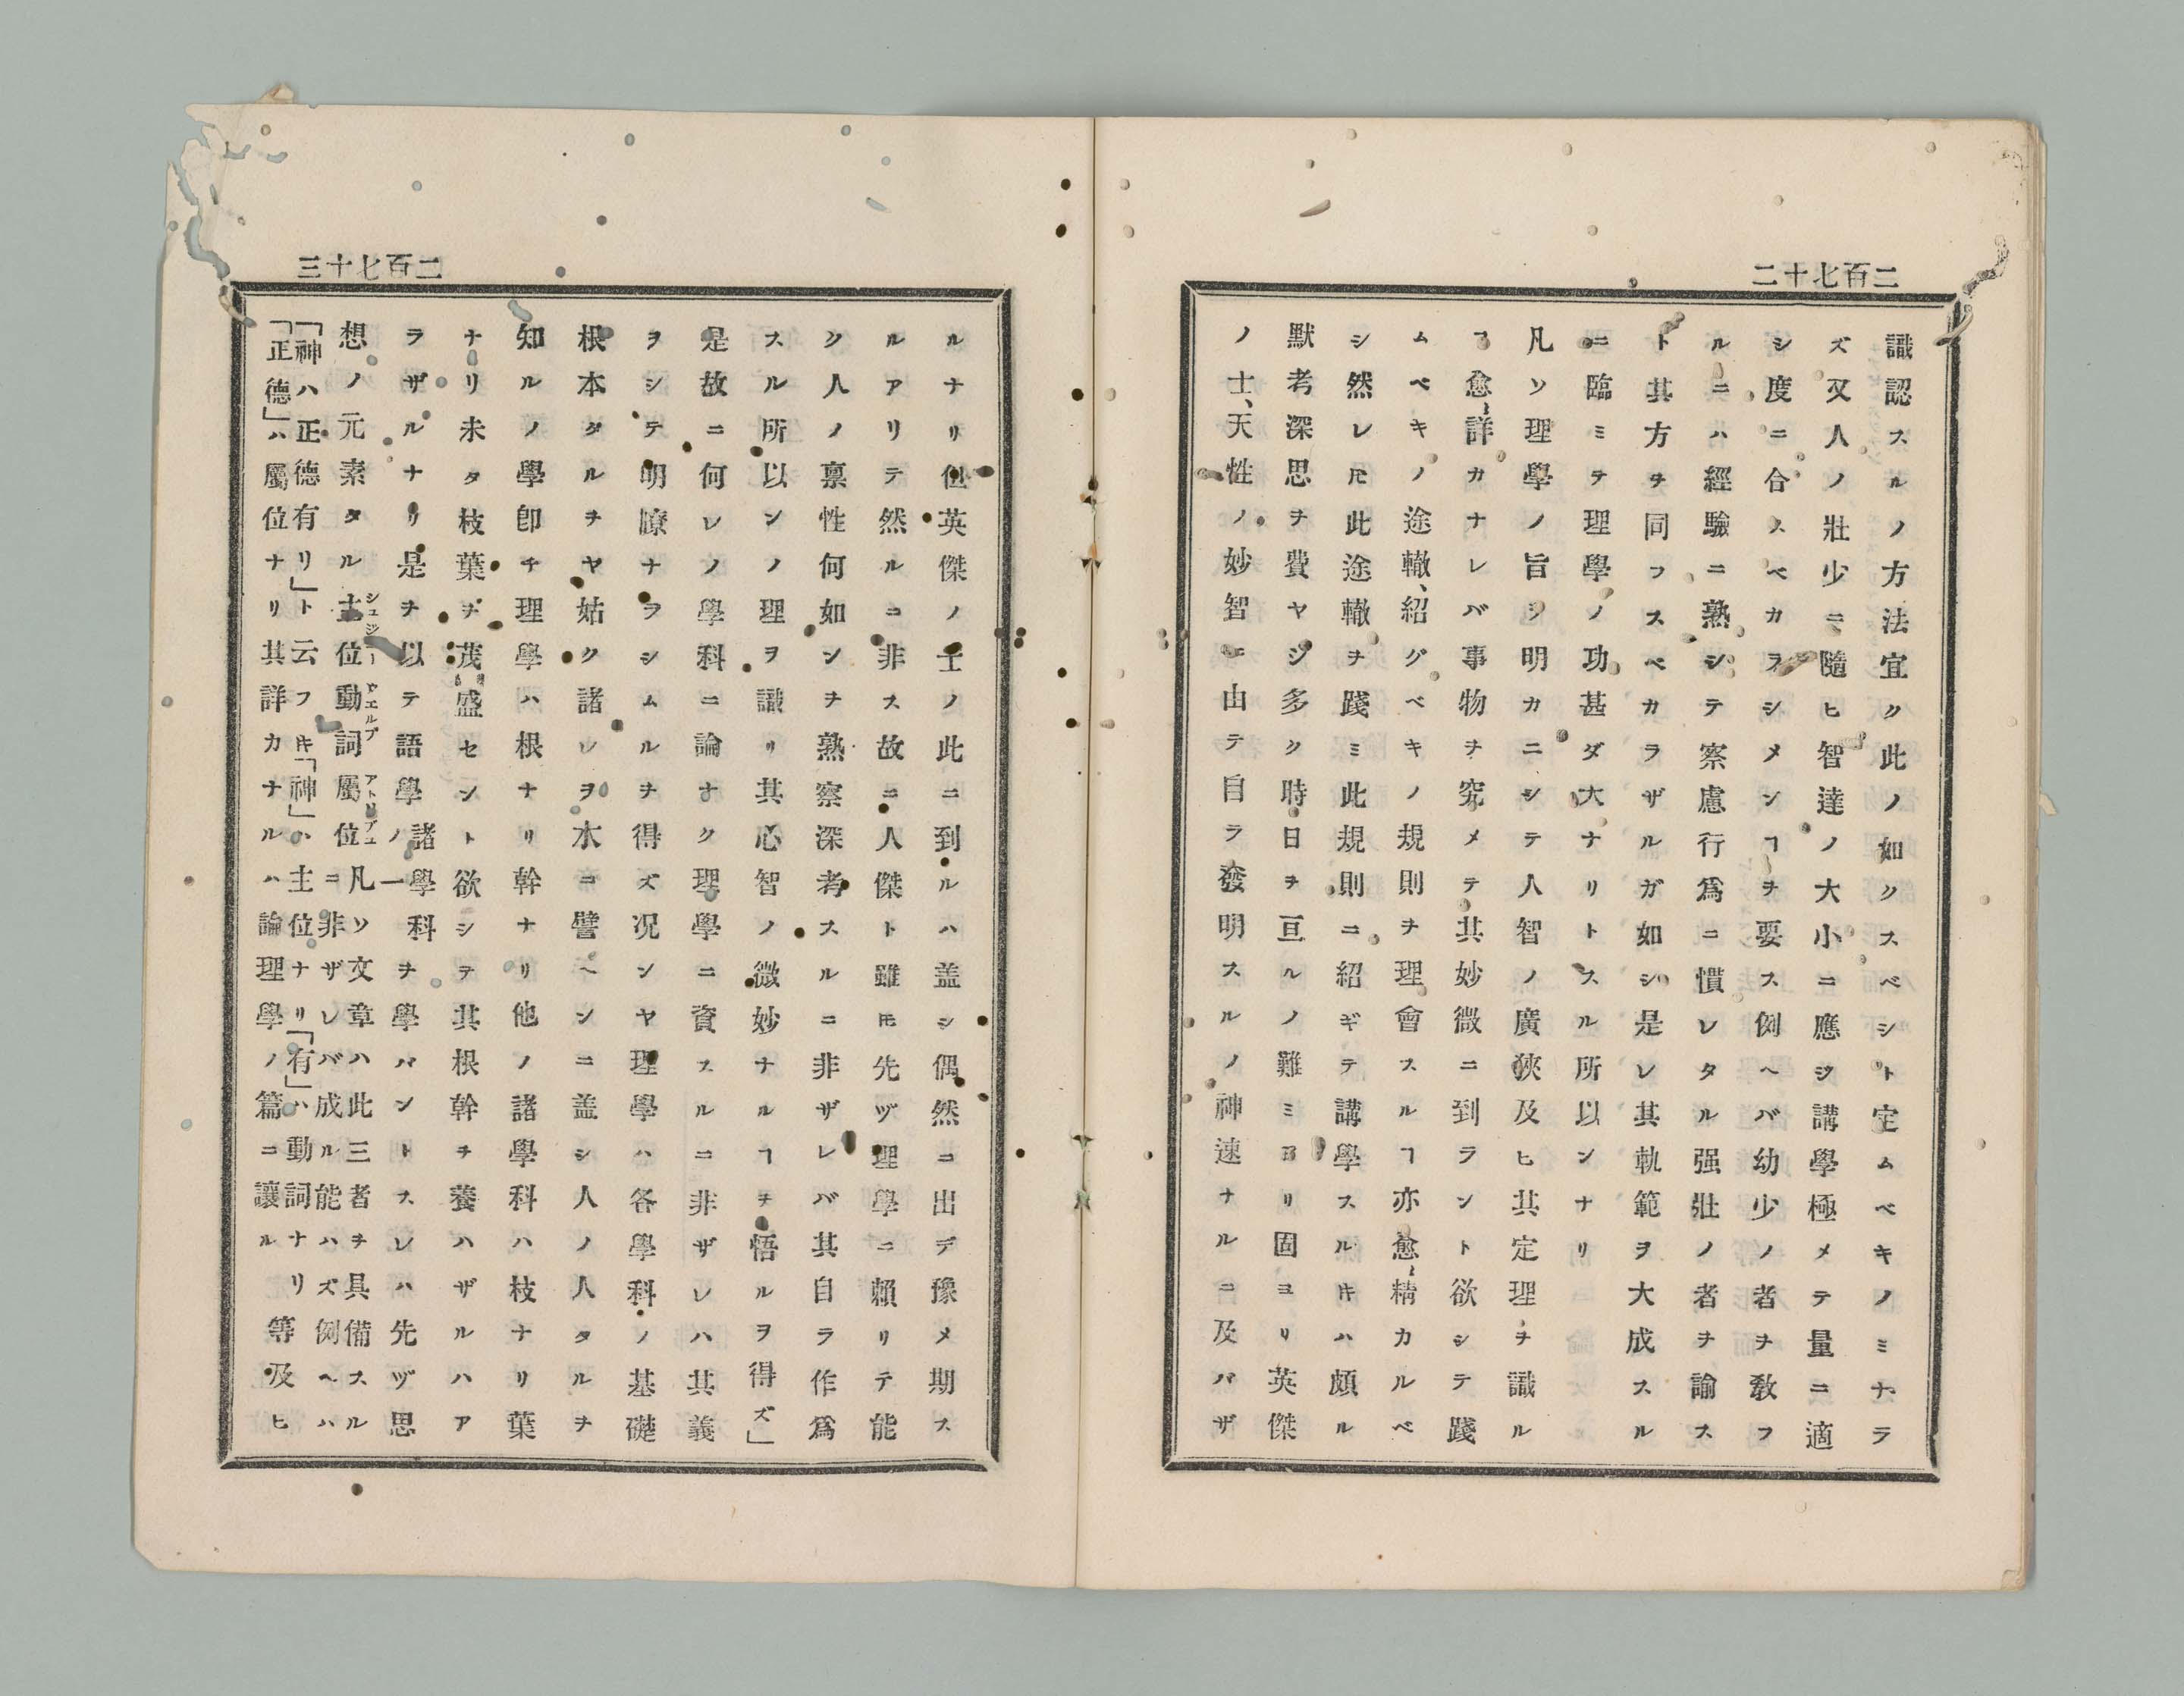 二百七十二
識認スルノ方法宜ク此ノ如クスベシト定ムベキノミナラ
ズ又人ノ壯少ニ隨ヒ智達ノ大小ニ應ジ講學極メテ量ニ適
シ度ニ合スベカラシメンヿヲ要ス例ヘバ幼少ノ者ヲ敎フ
ルニハ經驗ニ熟シテ察慮行爲ニ慣レタル强壯ノ者ヲ諭ス
ト其方ヲ同フスベカラザルガ如シ是レ其軌範ヲ大成スル
ニ臨ミテ理學ノ功甚ダ大ナリトスル所以ンナリ
凡ソ理學ノ旨シ明カニシテ人智ノ廣狹及ヒ其定理ヲ識ル
ヿ愈〻詳カナレバ事物ヲ究メテ其妙微ニ到ラント欲シテ踐
ムベキノ途轍、紹グベキノ規則ヲ理會スルヿ亦愈〻精カルベ
シ然レ𪜈此途轍ヲ踐ミ此規則ニ紹ギテ講學スルキハ頗ル
默考深思ヲ費ヤシ多ク時日ヲ亘ルノ難ミアリ固ヨリ英傑
ノ士、天性ノ妙智ニ由テ自ラ發明スルノ神速ナルニ及バザ
二百七十三
ルナリ但英傑ノ士ノ此ニ到ルハ盖シ偶然ニ出デ豫メ期ス
ルアリテ然ルニ非ス故ニ人傑ト雖𪜈先ヅ理學ニ賴リテ能
ク人ノ稟性何如ンヲ熟察深考スルニ非ザレバ其自ラ作爲
スル所以ンノ理ヲ識リ其心智ノ微妙ナルヿヲ悟ルヲ得ズ」
是故ニ何レノ學科ニ論ナク理學ニ資スルニ非ザレハ其義
ヲシテ明瞭ナヲシムルヲ得ズ况ンヤ理學ハ各學科ノ基礎
根本タルヲヤ姑ク諸レヲ木ニ譬ヘンニ盖シ人ノ人タルヲ
知ルノ學卽チ理學ハ根ナリ幹ナリ他ノ諸學科ハ枝ナリ葉
ナリ未タ枝葉ヲ茂盛セント欲シテ其根幹ヲ養ハザルハア
ラザルナリ是ヲ以テ語學諸學科ノ一ヲ學バントスレハ先ヅ思
想ノ元素タル主位動詞屬位凡ソ文章ハ此三者ヲ具備スル
シュジー ヤエルブ アトリブユ
ニ非ザレバ成ル能ハズ例ヘハ
「神ハ正德有リ」ト云フキ「神」ハ主位ナリ「有」ハ動詞ナリ
「正德」ハ屬位ナリ其詳カナルハ論理學ノ篇ニ讓ル等及ヒ